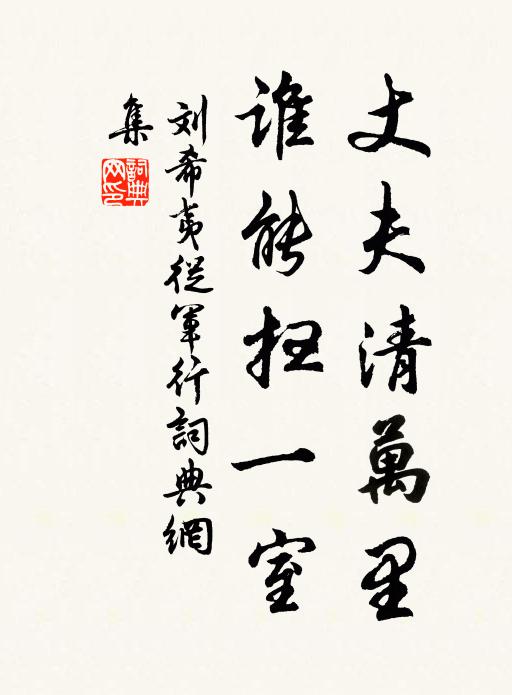 丈夫清萬里
谁能扫一室
刘希夷從軍行詞典網
集
詞典
网印